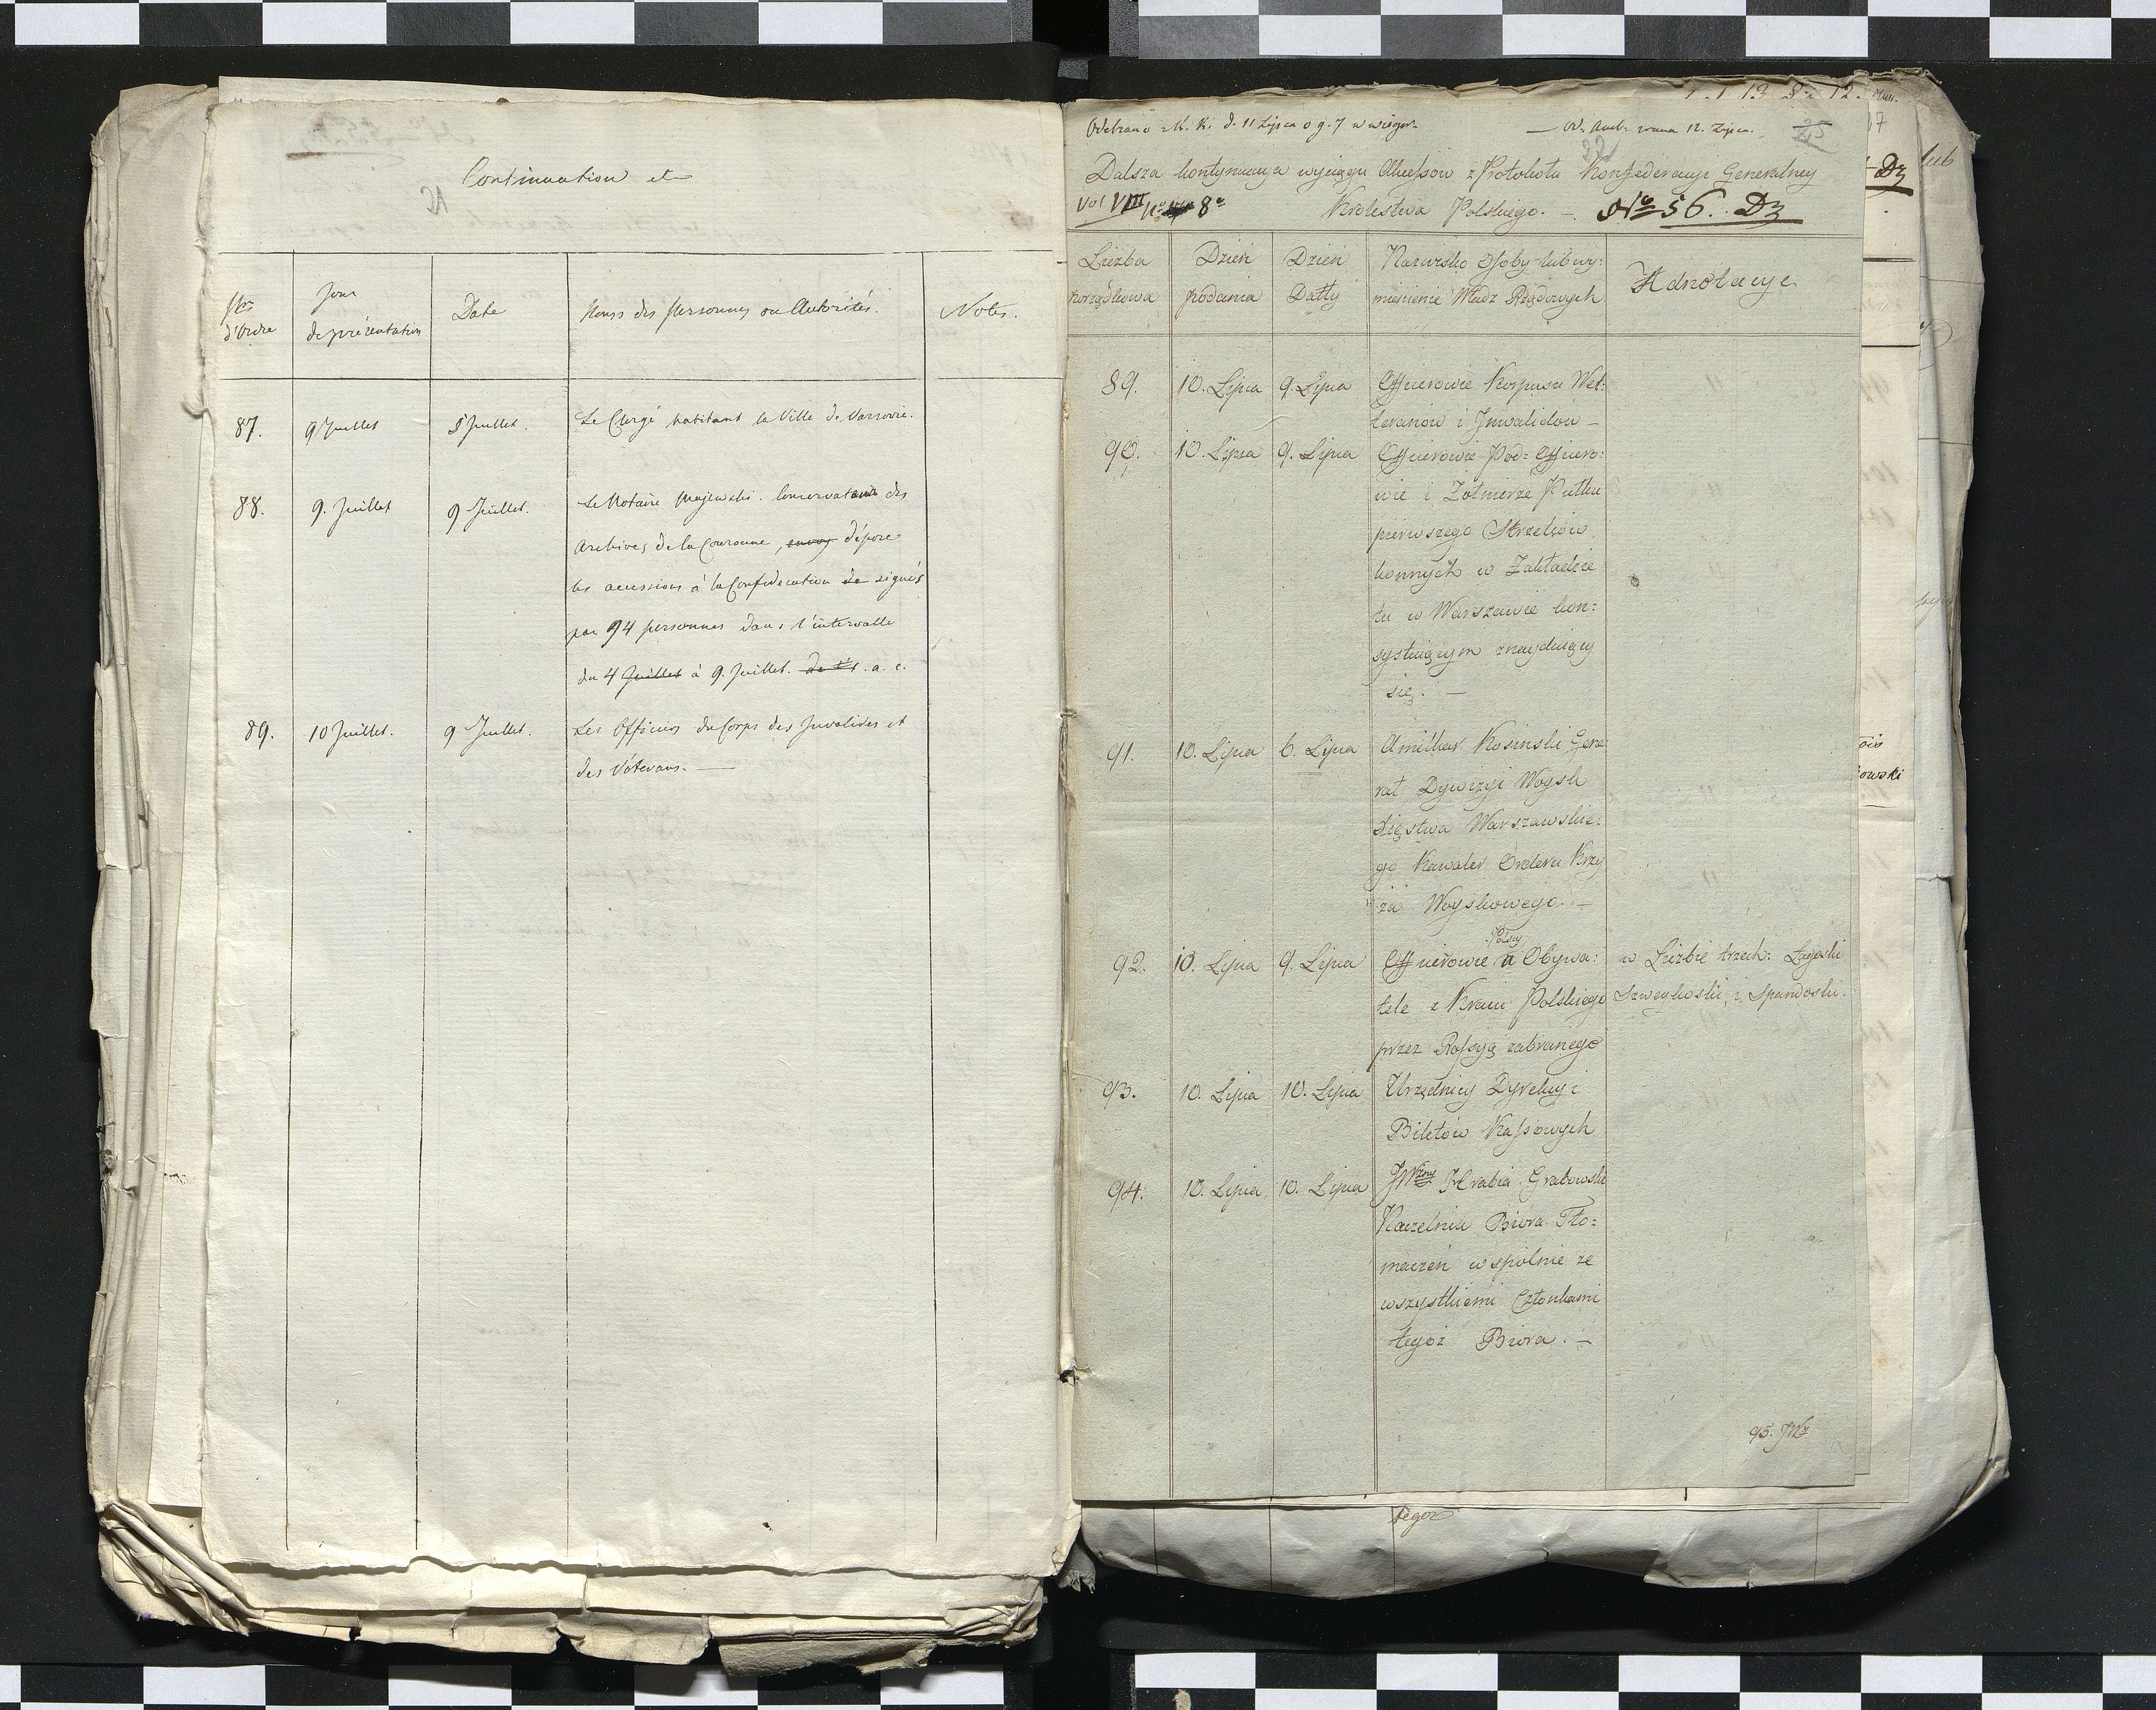 Continuation etc
21
Nro d'Ordre
Jour de présentation
Date
Noms des personnes ou Autorités.
Notes.
87. 9 Juillet 5 Juillet. Le Clergé habitant la Ville de Varsovie.
88. 9. Juillet 9 Juillet. Le Notaire Majewski. Conservateur des
Archives de la Couronne, envoy dépose
les accessions à la Confédération de signés
par 94 personnes dans l'intervalle
du 4 Juillet à 9. Juillet. a. c.
89. 10 Juillet. 9 Juillet. Les Officiers du Corps des Invalides et
des Véterans. —
Odebrano z K. K. d. 11 Lipca o g. 7 w wieczor.
12. Lipca.
25
32
Dalsza kontynuacya wyciągu Akcessow z Protokołu Konfederacyi Generalney
Vol VIII No 8o Krolestwa Polskiego. —. No 56. Dz
Liczba porządkowa
Dzień podania
Dzień Datty
Nazwisko Osoby lub wy=
mienienie Władz Rządowych
Adnotacye.
89. 10. Lipca 9. Lipca Officerowie Korpusu Wet=
teranów i Inwalidów —
90. 10. Lipca 9. Lipca Officerowie Pod=Officero=
wie i Zołnierze Pułku
pierwszego Strzelców
konnych w Zakładzie
tu w Warszawie kon=
systuiącym znayduiący
się. —
91. 10. Lipca 6. Lipca Amilkar Kosinski Gene=
rał Dywizyi Woysk
Xięstwa Warszawskie=
go Kawaler Orderu Krzy
ża Woyskowego. —
Polscy
92. 10. Lipca 9. Lipca Officerowie a Obywa= w Liczbie trzech: Łagoski
tele z Kraiu Polskiego Szweykoski, i Spandoski.
przez Rossyą zabranego
93. 10. Lipca 10. Lipca Urzędnicy Dyrekcyi
Biletów Kassowych
94. 10. Lipca 10. Lipca JWżny Hrabia Grabowski
Naczelnik Biora Tło=
maczeń wspolnie ze
wszystkiemi Członkami
tegoż Biora. —
95. JWż
tegoż
lub
Dz
17
owski